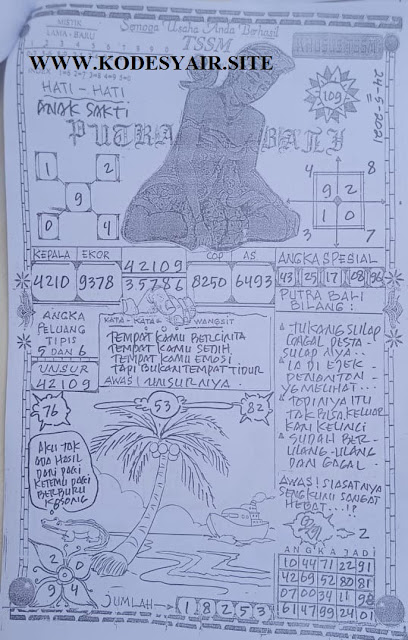 Semoga Usaha Anda Berhasil
MISTIK
LAMA - BARU
TSSM
WWW.KODESYAIR.SITE
HATI - HATI
ANAK SAKTI
PUTRA BALI
109
24-5-2021
1 2
9
0 4
4 8
9 2
1 0
3 7
KEPALA EKOR 42109 COP AS ANGKA SPESIAL
4210 9378 35786 8250 6493
43 25 17 08 96
PUTRA BALI
BILANG :
ANGKA
PELUANG
TIPIS
5 DAN 6
UNSUR
42109
KATA - KATA WANGSIT
TEMPAT KAMU BERCINTA
TEMPAT KAMU SEDIH
TEMPAT KAMU EMOSI
TAPI BUKAN TEMPAT TIDUR
AWAS! UNSURNYA
TUKANG SULAP
GAGAL PESTA
SULAPNYA
IA DI EJEK
PENONTON
YG MELIHAT
TOPINYA ITU
TAK BISA KELUAR
KAN KELINCI
SUDAH BER-
ULANG-ULANG
DAN GAGAL
AWAS! SIASATNYA
SENGKUNI SANGAT
HEBAT...!?
76
53
82
AKU TAK
ADA HASIL
DARI PAGI
KETEMU PAGI
BERBURU
KOSONG
2
2 0
9 4
JUMLAH → 1 8 2 5 3
ANGKA JADI
10 44 71 22 91
42 69 52 80 81
07 00 34 11 98
61 47 99 24 01